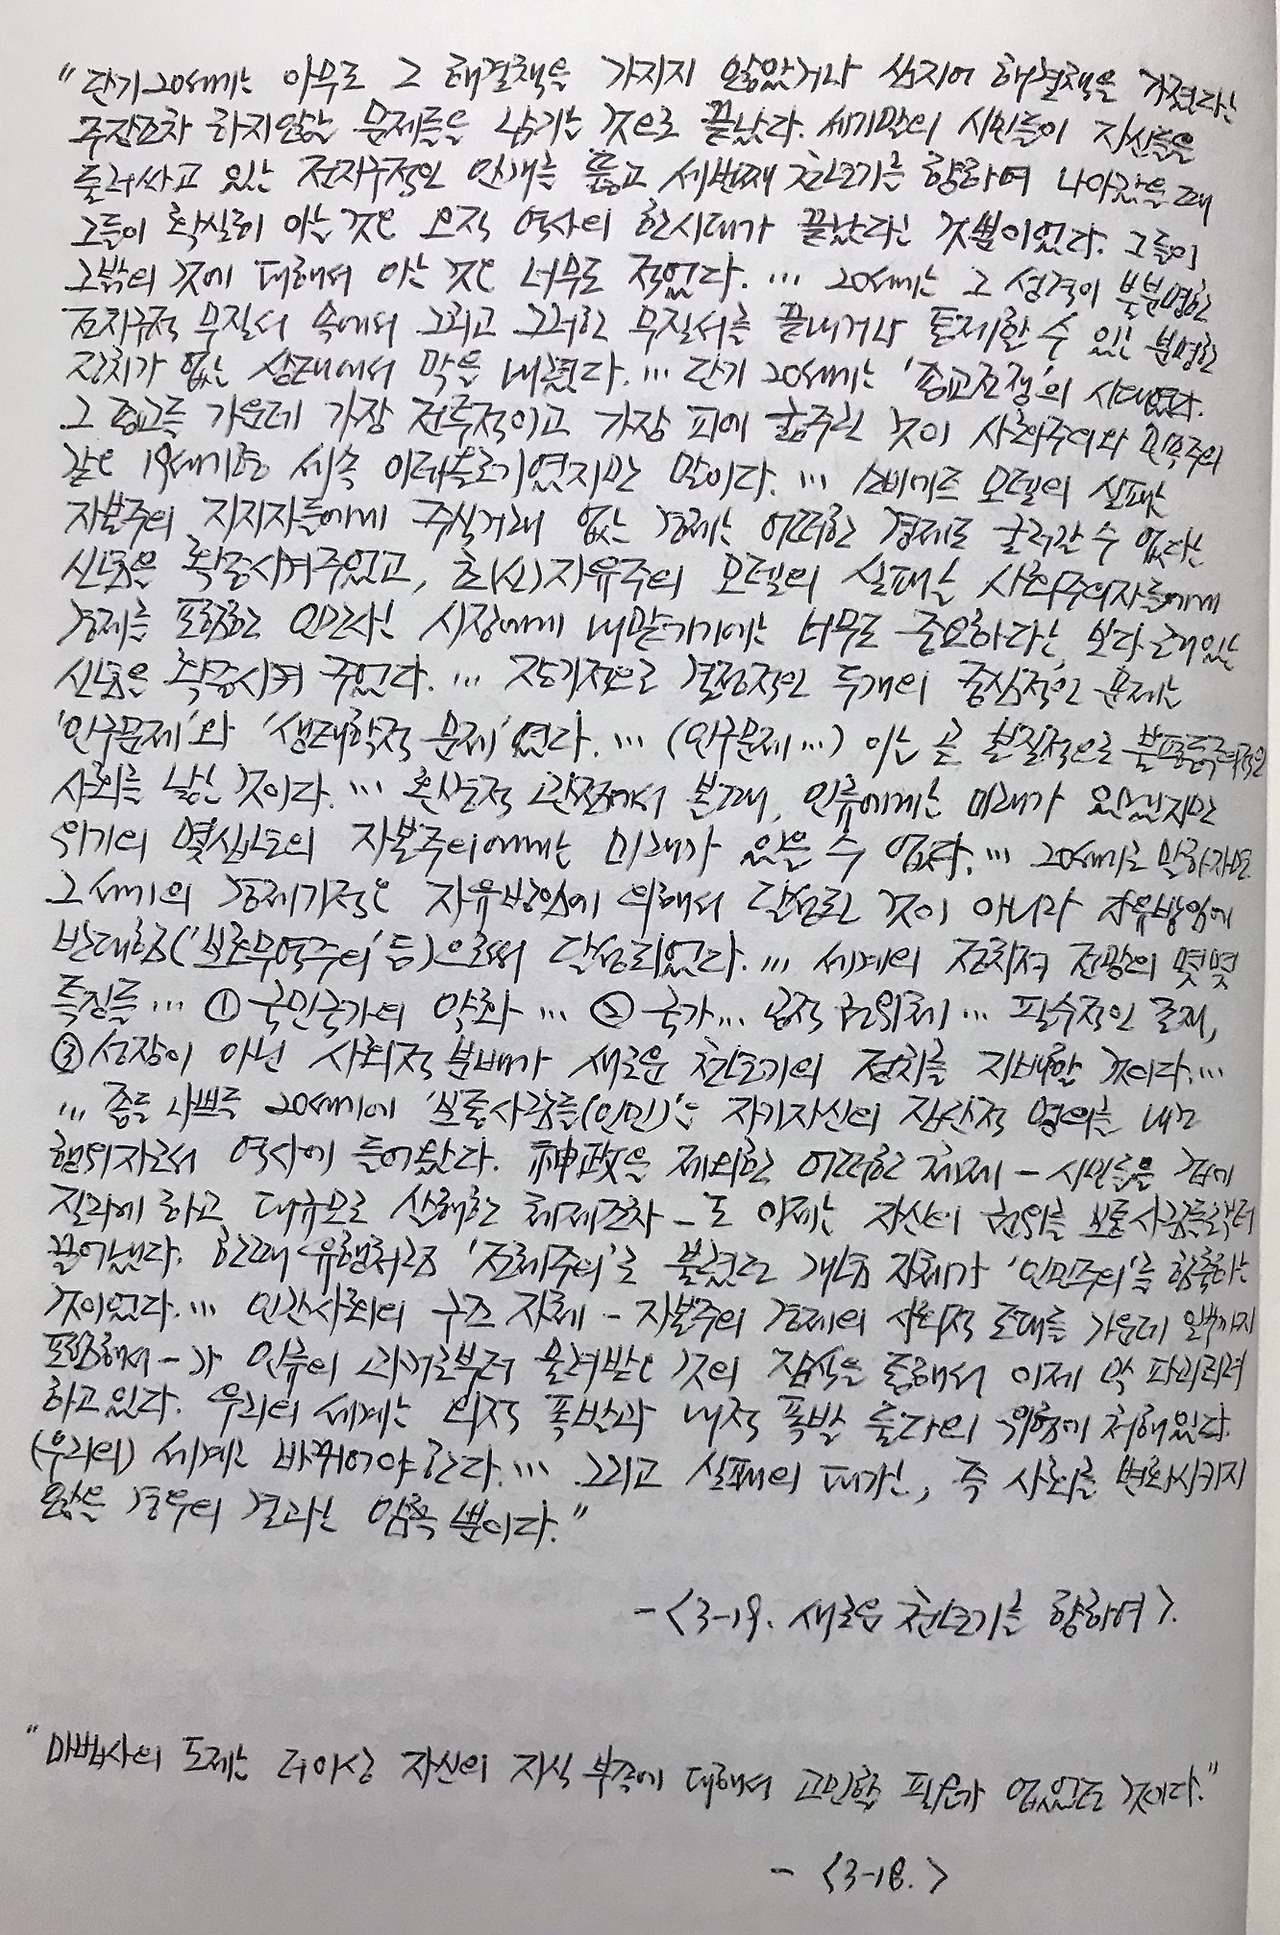 "단기20세기는 아무도 그 해결책을 가지지 않았거나 심지어 해결책을 가졌다는
주장조차 하지않는 문제들을 남기는 것으로 끝났다. 세기말의 시민들이 자신들을
둘러싸고 있는 전지구적인 안개를 뚫고 세번째 천년기를 향하여 나아갔을 때
그들이 확실히 아는 것은 오직 역사의 한시대가 끝났다는 것뿐이었다. 그들이
그밖의 것에 대해서 아는 것은 너무도 적었다. … 20세기는 그 성격이 불분명한
전지구적 무질서 속에서 그리고 그러한 무질서를 끝내거나 통제할 수 있는 분명한
장치가 없는 상태에서 막을 내렸다. … 단기 20세기는 '종교전쟁'의 시대였다.
그 종교들 가운데 가장 전투적이고 가장 피에 굶주린 것이 사회주의와 민족주의
같은 19세기산 세속 이데올로기였지만 말이다. … 소비에트 모델의 실패는
자본주의 지지자들에게 주식거래 없는 경제는 어떠한 경제도 굴러갈 수 없다는
신념을 확증시켜주었고, 초(신)자유주의 모델의 실패는 사회주의자들에게
경제를 포함한 인간사는 시장에게 내맡기기에는 너무도 중요하다는 보다 근거있는
신념을 확증시켜 주었다. … 장기적으로 결정적인 두개의 중심적인 문제는
'인구문제'와 '생태학적 문제'였다. … (인구문제…) 이는 곧 본질적으로 불평등주의적인
사회를 낳는 것이다. … 환경적 관점에서 볼때, 인류에게는 미래가 있겠지만
위기의 몇십년의 자본주의에게는 미래가 있을 수 없다. … 20세기로 말하자면
그 세기의 경제기적은 자유방임에 의해서 달성된 것이 아니라 자유방임에
반대함('보호무역주의' 등)으로써 달성되었다. … 세계의 정치적 전망의 몇몇
특징들 … ① 국민국가의 약화 … ② 국가… 공적 권위체 … 필수적인 존재,
③ 성장이 아닌 사회적 분배가 새로운 천년기의 정치를 지배할 것이다. …
… 좋든 나쁘든 20세기에 '보통사람들(인민)'은 자기자신의 집단적 명의를 내건
행위자로서 역사에 들어왔다. 神政을 제외한 어떠한 체제 – 시민들을 겁에
질리게 하고 대규모로 살해한 체제조차 – 도 이제는 자신의 권위를 보통사람들로부터
끌어냈다. 한때 유행처럼 '전체주의'로 불렸던 개념 자체가 '인민주의'를 함축하는
것이었다. … 인간사회의 구조 자체 – 자본주의 경제의 사회적 토대들 가운데 일부까지
포함해서 – 가 인류의 과거로부터 물려받은 것의 잠식을 통해서 이제 막 파괴되려
하고 있다. 우리의 세계는 외적 폭발과 내적 폭발 둘다의 위험에 처해있다.
(우리의) 세계는 바뀌어야 한다. … 그리고 실패의 대가는, 즉 사회를 변화시키지
않은 경우의 결과는 암흑 뿐이다."
– <3-19. 새로운 천년기를 향하여>.
"마법사의 도제는 더이상 자신의 지식 부족에 대해서 고민할 필요가 없었던 것이다."
– <3-18.>